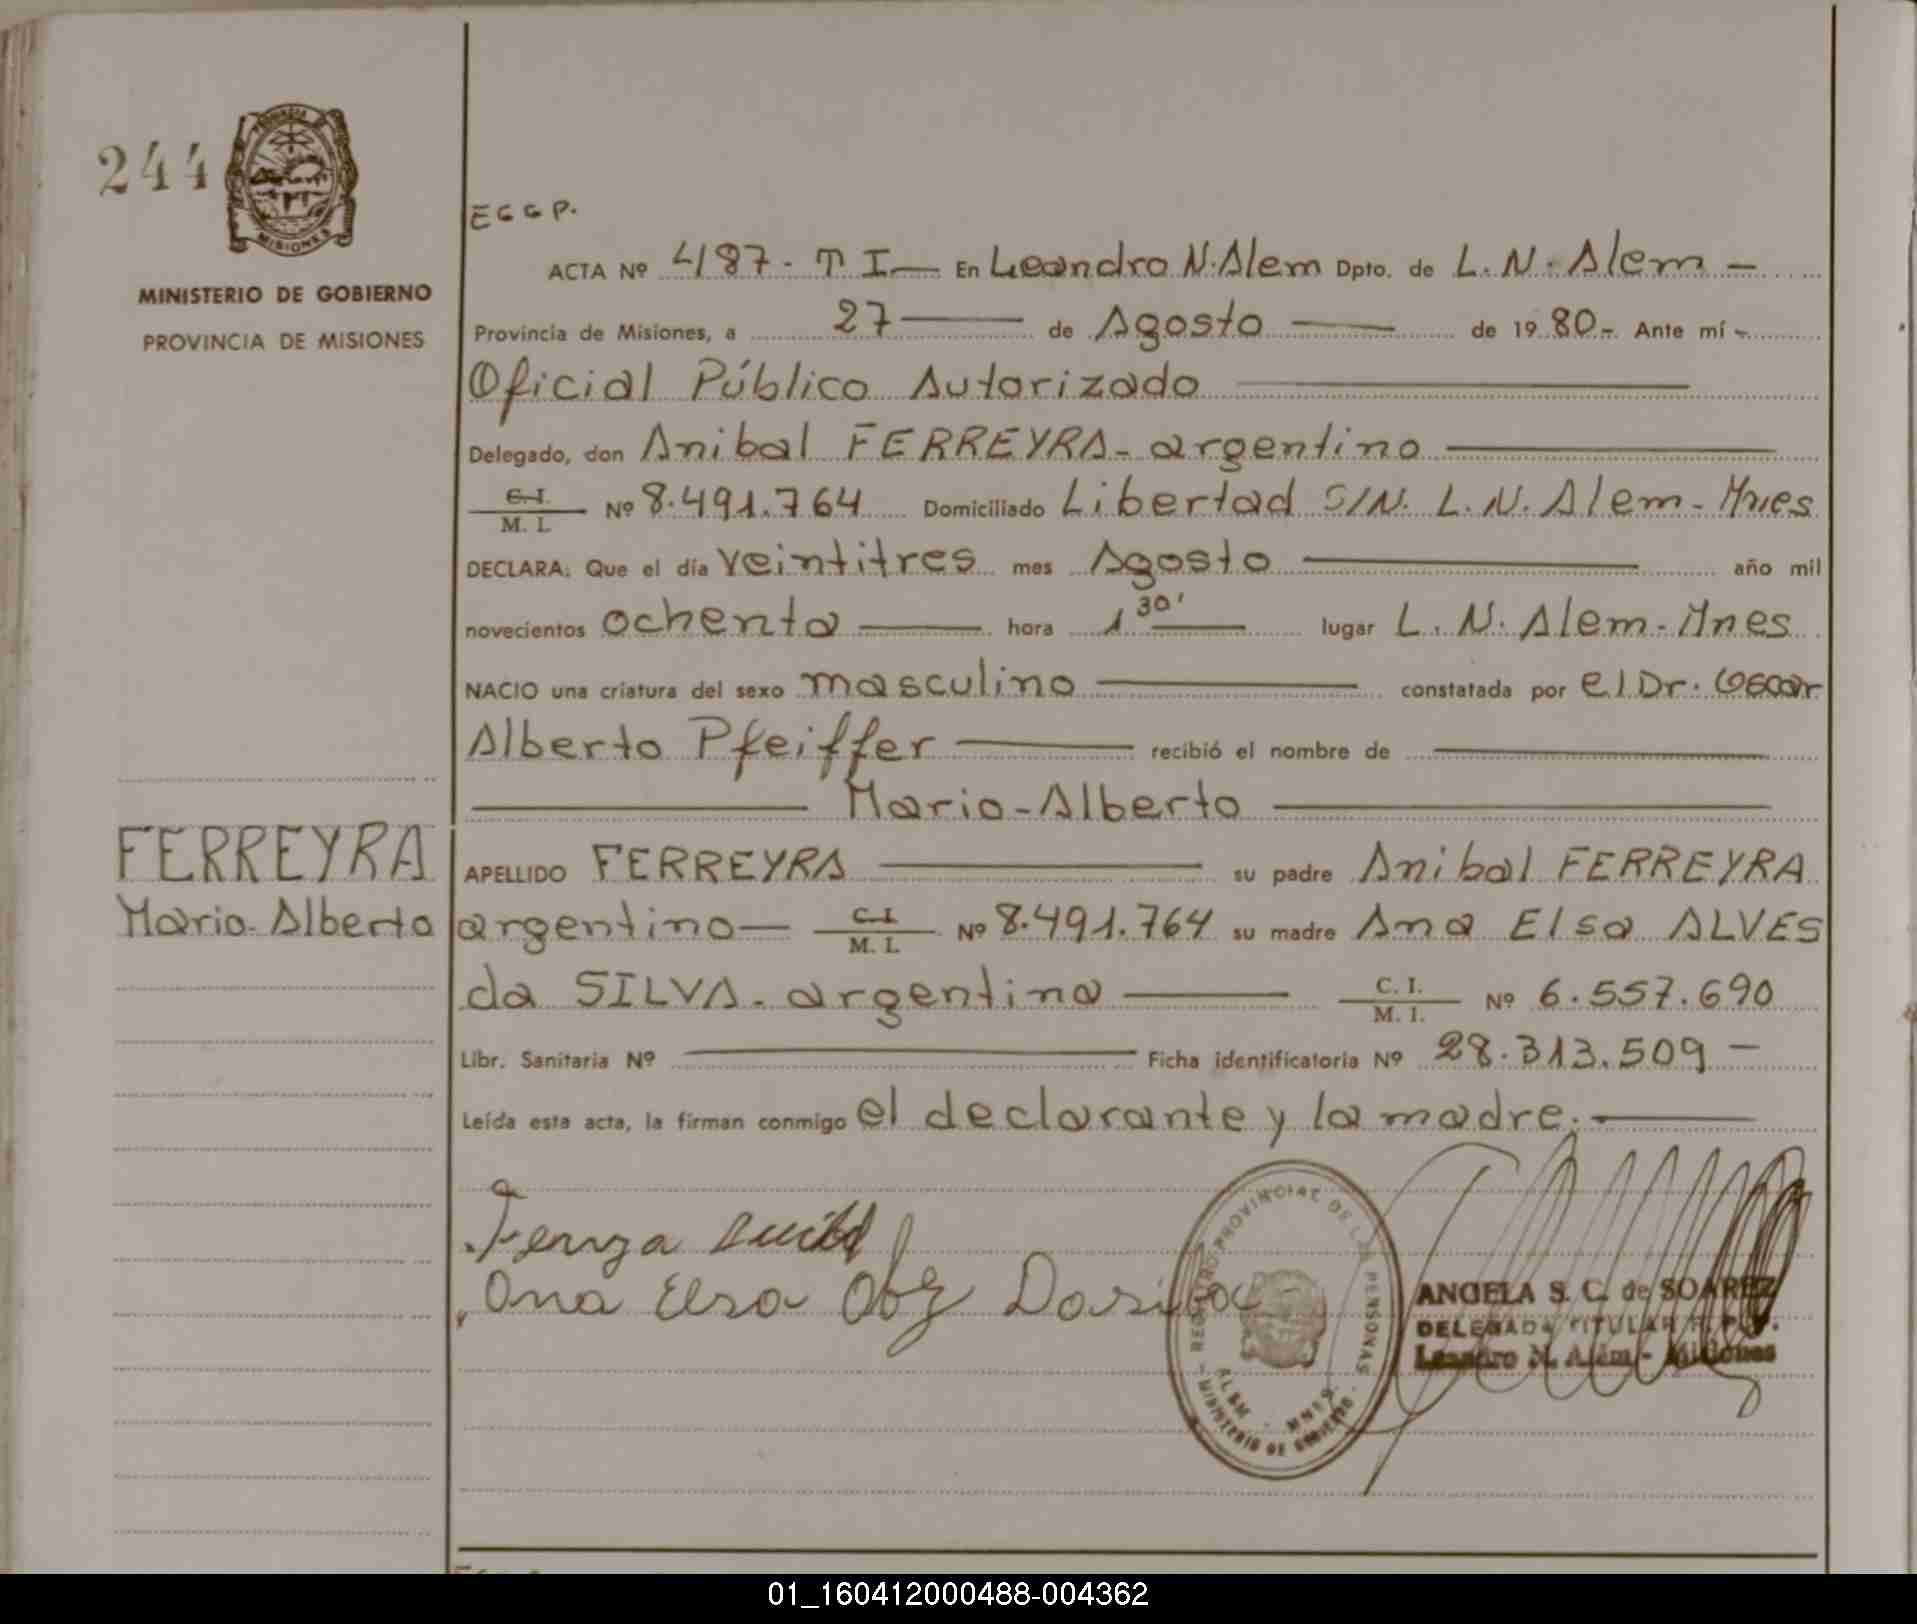 244
PROVINCIA DE
MISIONES
MINISTERIO DE GOBIERNO
PROVINCIA DE MISIONES
FERREYRA
Mario-Alberto
EGGP.
ACTA Nº 487- T I — En Leandro N. Alem Dpto. de L. N. Alem -
Provincia de Misiones, a 27 — de Agosto — de 19 80-. Ante mí -
Oficial Público Autorizado
Delegado, don Anibal FERREYRA- argentino
C.I. M. I. Nº 8.491.764 Domiciliado Libertad S/N. L. N. Alem- Mnes
DECLARA: Que el día veintitres mes Agosto — año mil
novecientos ochenta — hora 1 30' — lugar L. N. Alem-Mnes
NACIO una criatura del sexo masculino — constatada por el Dr. Oscar
Alberto Pfeiffer — recibió el nombre de —
— Mario-Alberto —
APELLIDO FERREYRA — su padre Anibal FERREYRA
argentino — C.I. M. I. Nº 8.491.764 su madre Ana Elsa ALVES
da SILVA- argentina — C. I. M. I. Nº 6.557.690
Libr. Sanitaria Nº — Ficha identificatoria Nº 28.313.509 -
Leída esta acta, la firman conmigo el declarante y la madre. —
Ana Elsa
REGISTRO PROVINCIAL DE LAS PERSONAS
ALEM - MNES.
MINISTERIO DE GOBIERNO
ANGELA S. C. de SOAREZ
DELEGADA TITULAR R. P. P.
Leandro N. Alem - Misiones
01_160412000488-004362